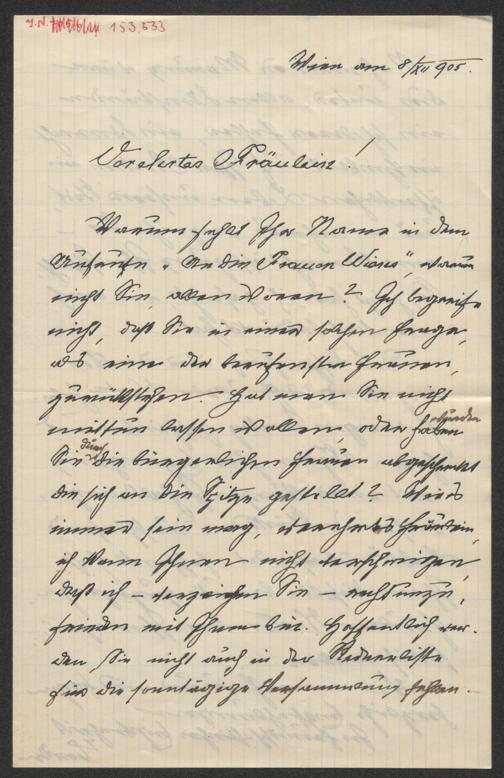 J.N. 153.533
Wien am 8/XII 905.
Verehrtes Fräulein!
Warum fehlt Ihr Name in dem
Aufrufe „An die Frauen Wiens“, warum
nicht Sie, allen voran? Ich begreife
nicht, daß Sie in einer solchen Frage,
als eine der berufensten Frauen,
zurückstehen. Hat man Sie nicht
mittun lassen wollen, oder
Sie durch die bürgerlichen Frauen abgeschreckt
die sich an die Spitze gestellt? Wie's
immer sein mag, verehrtes Fräulein,
ich kann Ihnen nicht verschweigen,
daß ich – verzeihen Sie – recht unzu-
frieden mit Ihnen bin. Hoffentlich wer-
den Sie nicht auch in der Rednerliste
für die sonntägige Versammlung fehlen.